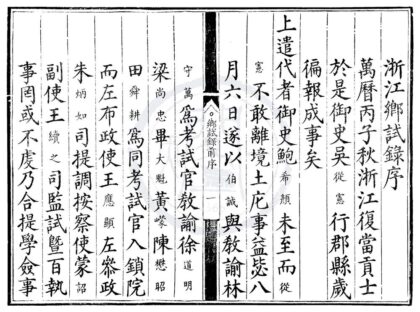 浙江鄉試錄序
萬曆丙子秋浙江復當貢士
於是御史吳從憲行郡縣歲
徧報成事矣
上遣代者御史鮑希顏未至而從
憲不敢離境土庀事益毖八
月六日遂以伯誠與教諭林
鄉試錄前序 一
守萬爲考試官教諭徐道明
梁尚忠畢大魁黃嶸陳懋昭
田舜耕爲同考試官入鎖院
而左布政使王應顯左參政
朱炳如司提調按察使蒙詔
副使王續之司監試曁百執
事罔或不虔乃合提學僉事